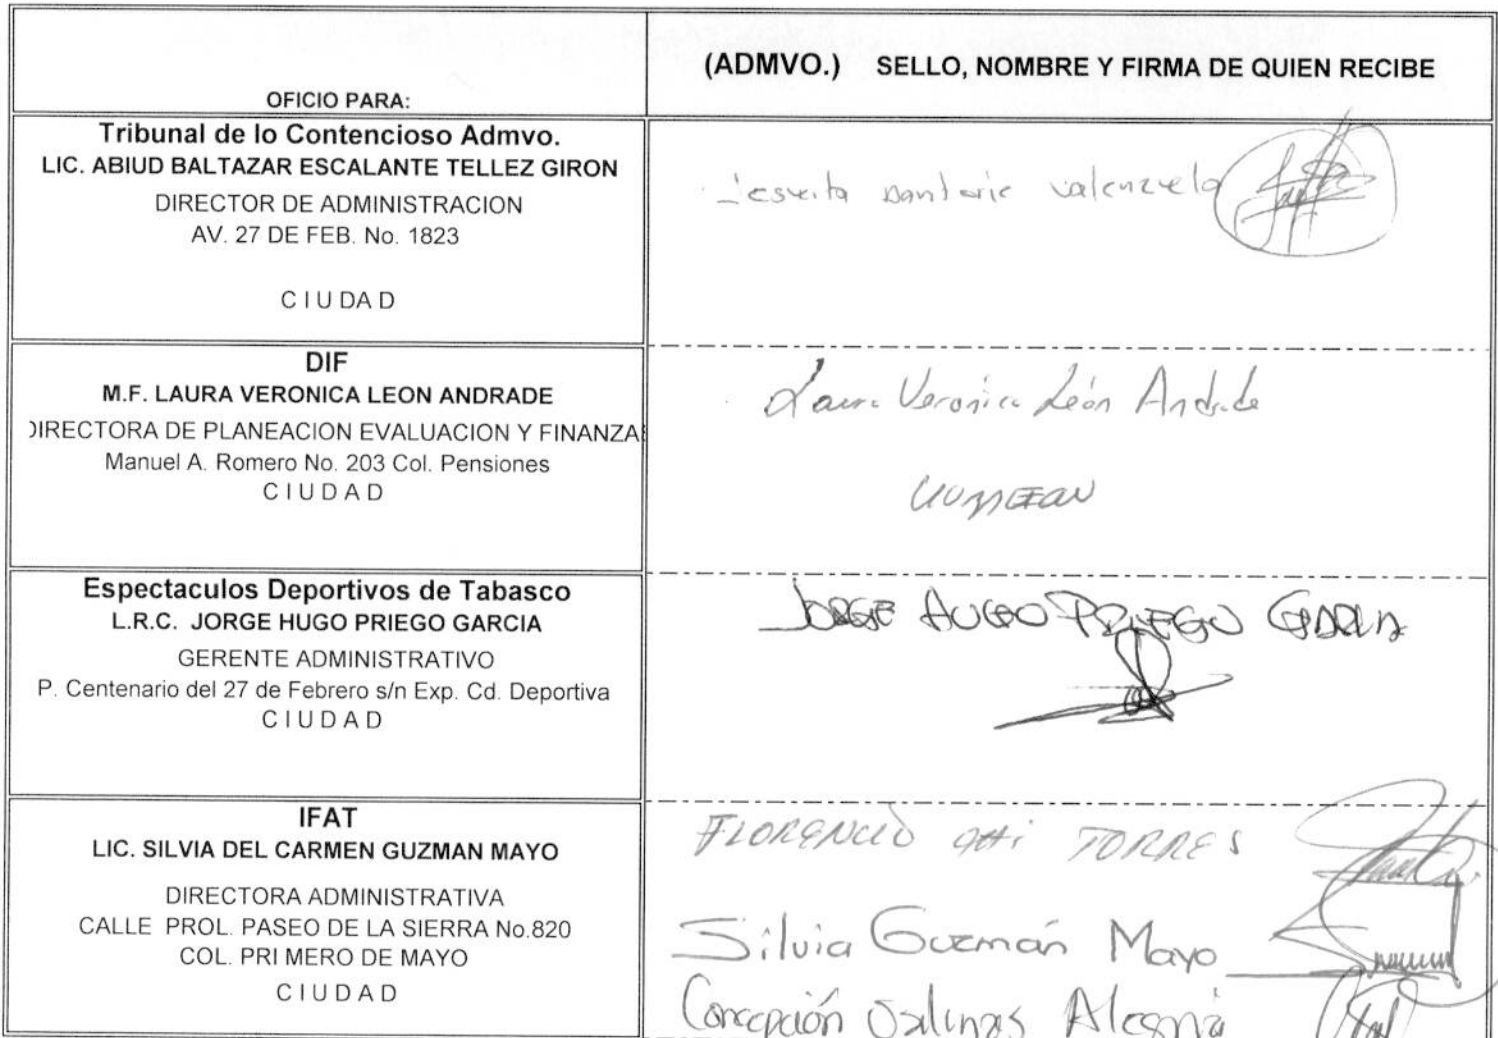 OFICIO PARA:
(ADMVO.) SELLO, NOMBRE Y FIRMA DE QUIEN RECIBE
Tribunal de lo Contencioso Admvo.
LIC. ABIUD BALTAZAR ESCALANTE TELLEZ GIRON
DIRECTOR DE ADMINISTRACION
AV. 27 DE FEB. No. 1823
C I U DA D
valenzuela
DIF
M.F. LAURA VERONICA LEON ANDRADE
DIRECTORA DE PLANEACION EVALUACION Y FINANZA
Manuel A. Romero No. 203 Col. Pensiones
C I U D A D
Laura Veronica León Andrade
Espectaculos Deportivos de Tabasco
L.R.C. JORGE HUGO PRIEGO GARCIA
GERENTE ADMINISTRATIVO
P. Centenario del 27 de Febrero s/n Exp. Cd. Deportiva
C I U D A D
JORGE HUGO PRIEGO GARCIA
IFAT
LIC. SILVIA DEL CARMEN GUZMAN MAYO
DIRECTORA ADMINISTRATIVA
CALLE PROL. PASEO DE LA SIERRA No.820
COL. PRI MERO DE MAYO
C I U D A D
FLORENCIO TORRES
Silvia Guzmán Mayo
Concepción Salinas Alegría